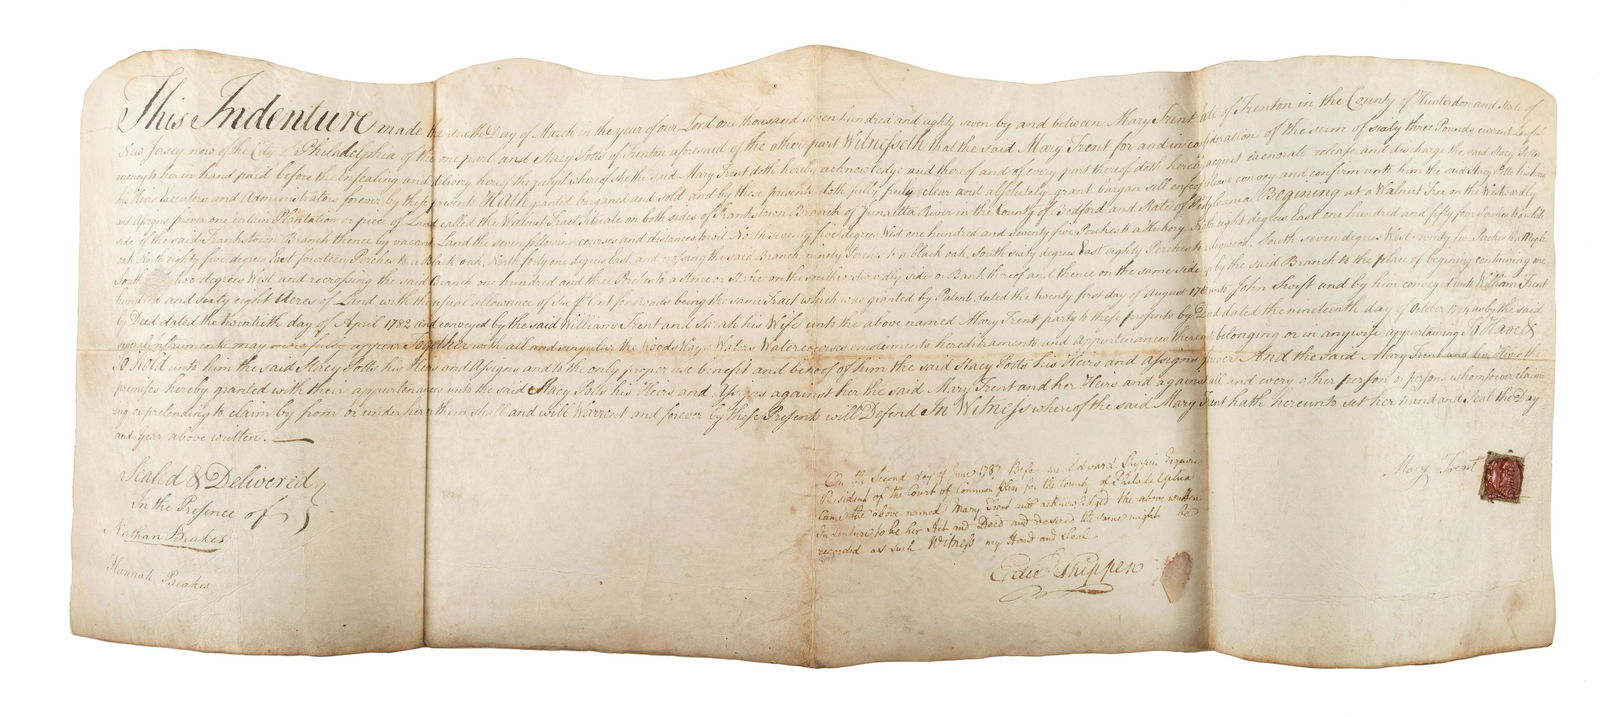 This Indenture made the sixth Day of March in the year of our Lord one thousand seven hundred and eighty seven by and between Mary Trent late of Trenton in the County of Hunterdon and State of
New Jersey now of the City of Philadelphia of the one part and Stacy Potts of Trenton aforesaid of the other part Witnesseth that the said Mary Trent for and in consideration of the sum of sixty three Pounds current lawful
money to her in hand paid before the Ensealing and delivery hereof the receipt whereof she the said Mary Trent doth hereby acknowledge and thereof and of every part thereof doth hereby acquit exonerate release and discharge the said Stacy Potts
his Heirs Executors and Administrators forever by these presents Hath granted bargained and sold and by these presents doth fully clear and absolutely grant bargan sell enfeof release convey and confirm unto him the said Stacy Potts his Heirs
and Assigns forever one certain Plantation or piece of Land called the Walnut Tract Situate on both sides of Frankstown Branch of Juniatta River in the County of Bedford and State of Pensylvania Begining at a Walnut Tree on the Westwardly
side of the said Frankstown Branch thence by vacant Land the seven following courses and distances to wit North seventy five degrees West one hundred and seventy five Perches to a Hickory North eight degrees East one hundred and fifty four Perches to a white
oak North eighty five degrees East fourteen Perches to a Black oak, North forty one degrees East, and crossing the said Branch, ninety Perches to a black oak, South sixty degrees East eighty Perches to dogwood, South seven degrees West seventy six Perches to a Maple
South two degrees West and recrossing the said Branch one hundred and three Perches to a stone or Stake on the southwestwardly side or Bank thereof and thence on the same side up by the said Branch to the place of begining containing one
hundred and sixty eight Acres of Land with the usual allowance of Six Cent for roads being the same Tract which was granted by Patent dated the twenty first day of August unto John Swift and by him conveyed unto William Trent
by Deed dated the twentieth day of April 1782 and conveyed by the said William Trent and Sarah his Wife unto the above named Mary Trent party to these presents by Deed dated the nineteenth day of October as by the said
instruments may more fully appear Together with all and singular the Woods Ways Waters Watercourses emoluments hereditaments and appurtenances thereunto belonging or in anywise appertaining To Have &
to Hold unto him the said Stacy Potts his Heirs and Assigns and to the only proper use benefit and behoof of him the said Stacy Potts his Heirs and Assigns forever And the said Mary Trent and her Heirs the
premises hereby granted with their appurtenances unto the said Stacy Potts his Heirs and Assigns against her the said Mary Trent and her Heirs and against all and every other person or persons whomsoever claim
ing or pretending to claim by from or under her or them shall and will Warrent and forever by these Presents will Defend In Witness whereof the said Mary Trent hath hereunto set her hand and Seal the Day
and Year above written.
Sealed & Delivered
In the Presence of
Nathan Beakes
Hannah Beakes
On the Second day of June 1787 Before me Edward Shippen Esquire
President of the Court of Common pleas for the County of Philadelphia
Came the above named Mary Trent and acknowledged the above written
Indenture to be her Act and Deed and desired the same might be
recorded as such Witness my Hand and Seal
Edwd Shippen
Mary Trent